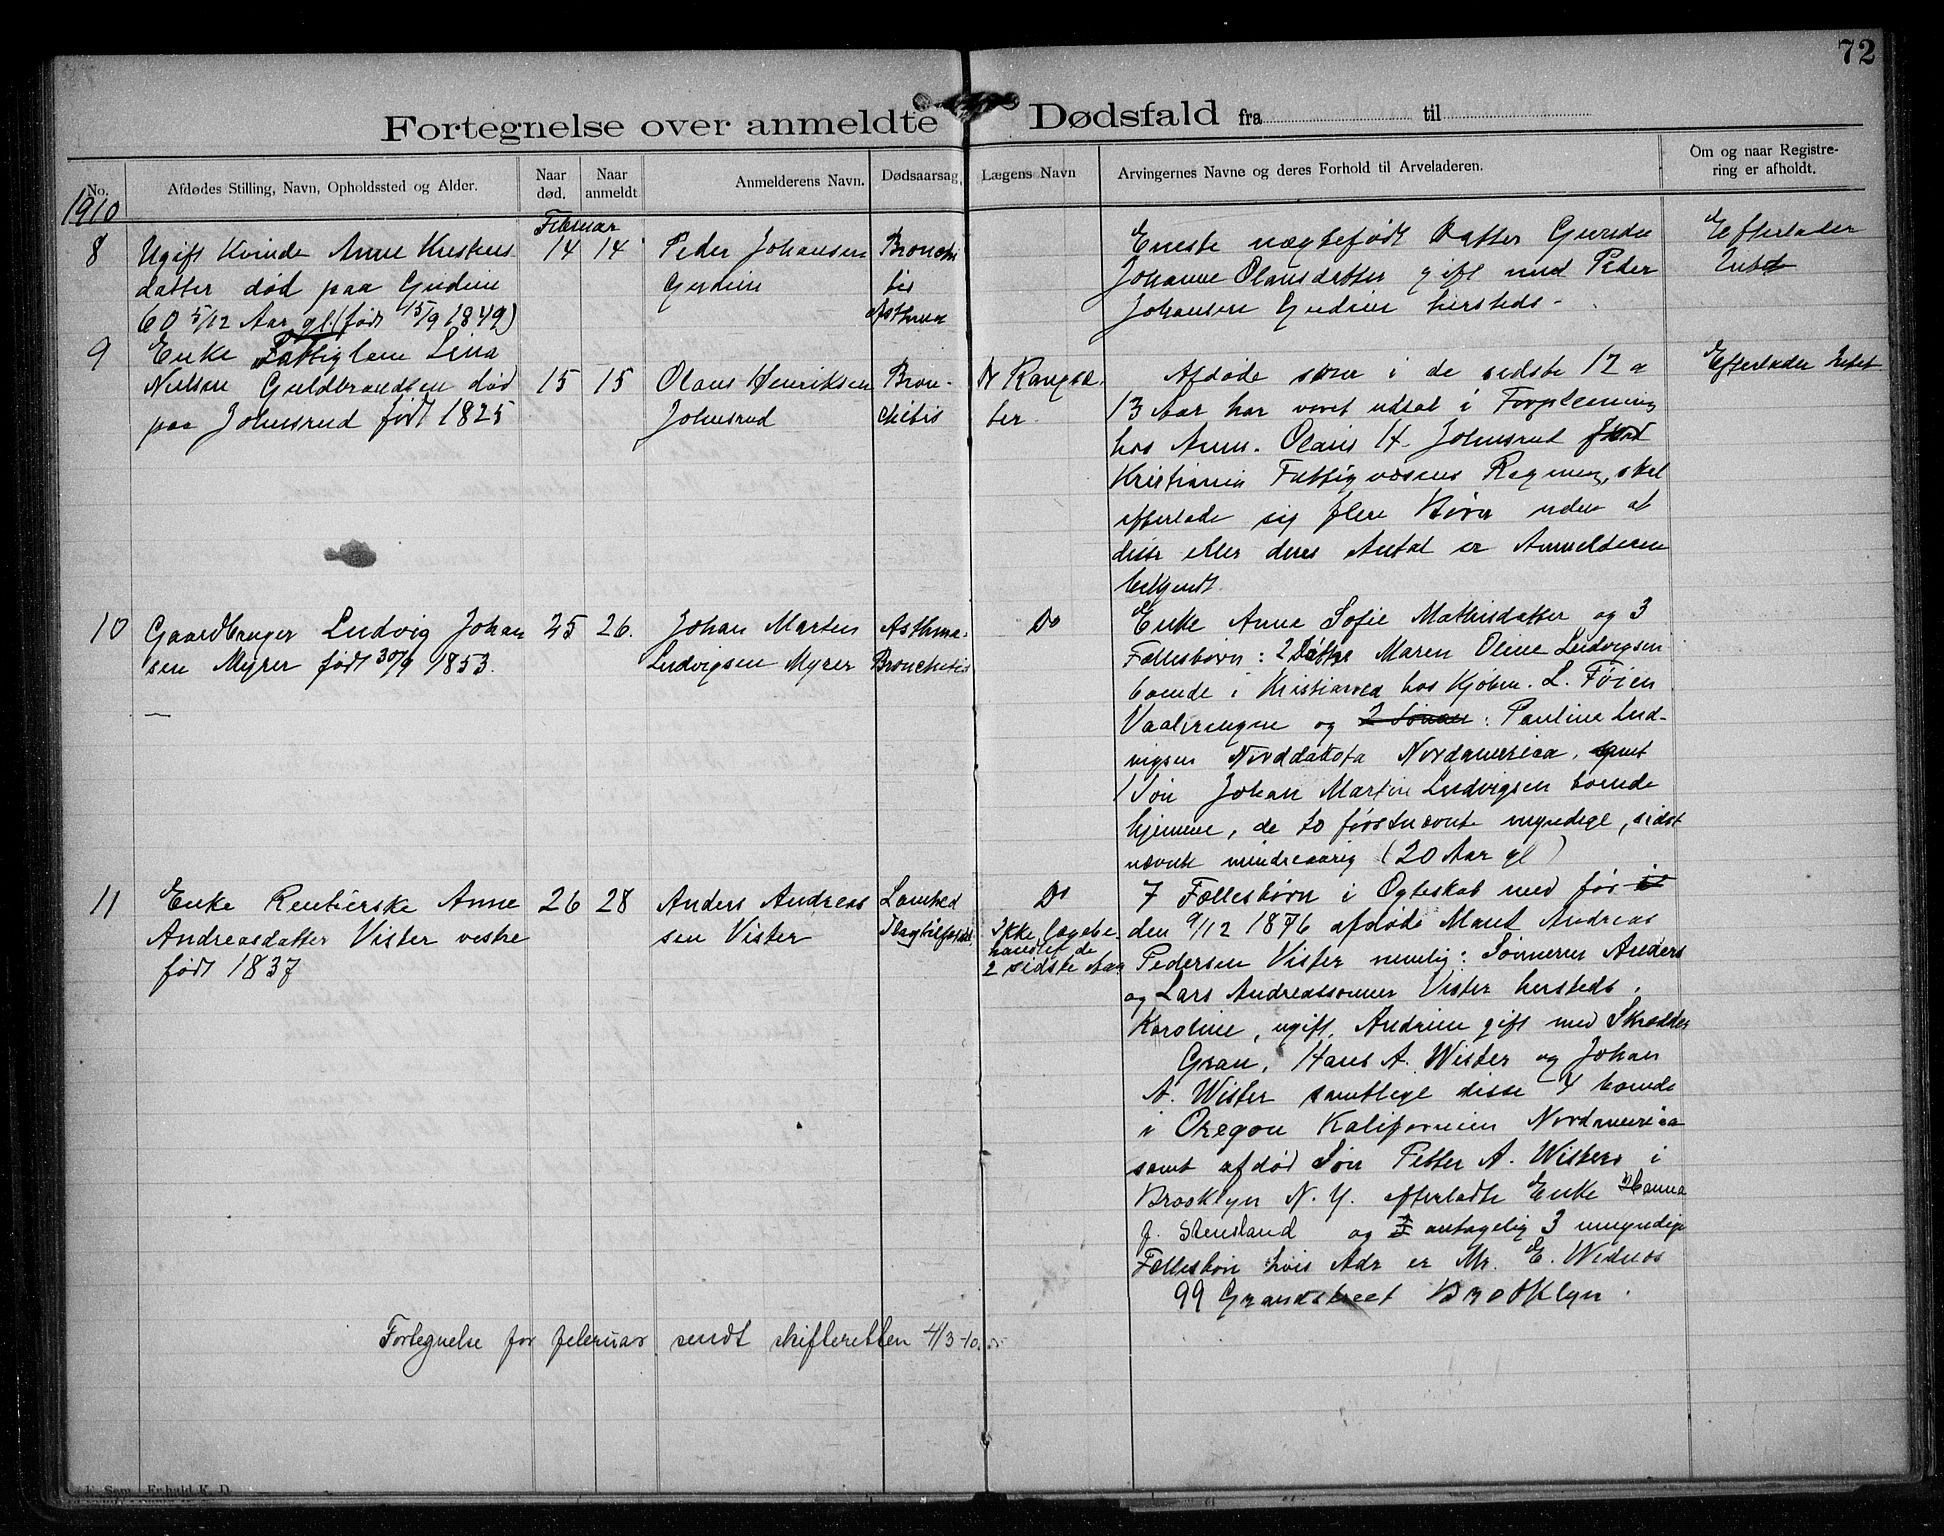 72
Fortegnelse over anmeldte Dødsfald fra til
No. Afdødes Stilling, Navn, Opholdssted og Alder. Naar død. Naar anmeldt Anmelderens Navn. Dødsaarsag. Lægens Navn Arvingernes Navne og deres Forhold til Arveladeren. Om og naar Registrering er afholdt.
1910
Februar
8 Ugift Kvinde Anne Kristens 14 14 Peder Johansen Bronchi Eneste uægtefødt Datter Gunda Efterlader
datter død paa Gudim Gudim tis Johanne Olausdatter gift med Peder Intet
60 5/12 Aar gl. (født 15/9 1849) Asthma Johansen Gudim hersteds.
9 Enke Fattiglem Lina
Nielsen Guldbrandsen død 15 15 Olaus Henriksen Bron- Dr Rangsæ- Afdøde som i de sidste 12 a Efterlader Intet
paa Johnsrud født 1825 Johnsrud chitis ter. 13 Aar har været udsat i Forpleining
hos Anm. Olaus H. Johnsrud for
Kristiania Fattigvæsens Regning, skal
efterlade sig flere Børn uden at
disse eller deres Antal er Anmelderen
bekjendt.
10 Gaardbruger Ludvig Johan 25 26. Johan Martin Asthma- Do Enke Anne Sofie Mathisdatter og 3
sen Myrer født 30/9 1853. Ludvigsen Myrer Bronchitis Fællesbørn: 2 Døttre Maren Oline Ludvigsen
boende i Kristiania hos Kjøbm. L. Føien
Vaalerengen og 2 Sønner: Pauline Lud-
vigsen Norddakota Nordamerica. samt
1 Søn Johan Martin Ludvigsen boende
hjemme, de to førstnævnte myndige, sidst
nævnte mindreaarig (20 Aar gl)
11 Enke Rentierske Anne 26 28 Anders Andreas Lamhed Do 7 Fællesbørn i Egteskab med før
Andreasdatter Vister vestre sen Vister Slagtilfælde Ikke lægebe- den 9/12 1876 afdøde Mand Andreas
født 1837 handlet de Pedersen Vister nemlig: Sønnerne Anders
2 sidste Aar og Lars Andreassønner Vister hersteds.
Karoline, ugift, Andrine gift med Skrædder
Gran, Hans A. Wister og Johan
A. Wister samtlige disse 4 boende
i Oregon Kalifornien Nordamerica
samt afdød Søn Petter A. Wisters i
Brooklyn N. Y. efterladte Enke Hanna
f. Stensland og 3 antagelig 3 umyndige
Fællesbørn hvis Adr er Mr. E.
99 Grandstreet Brooklyn.
Fortegnelse for februar sendt skifteretten 4/3-10.